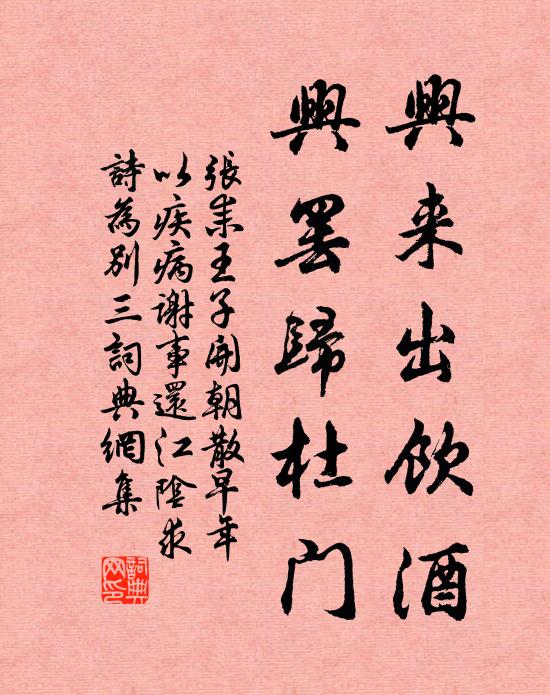 興来出飲酒
興罢歸杜门
張耒王子開朝散早年
以疾病謝事還江陰求
詩為别三詞典網集
詞典
网印